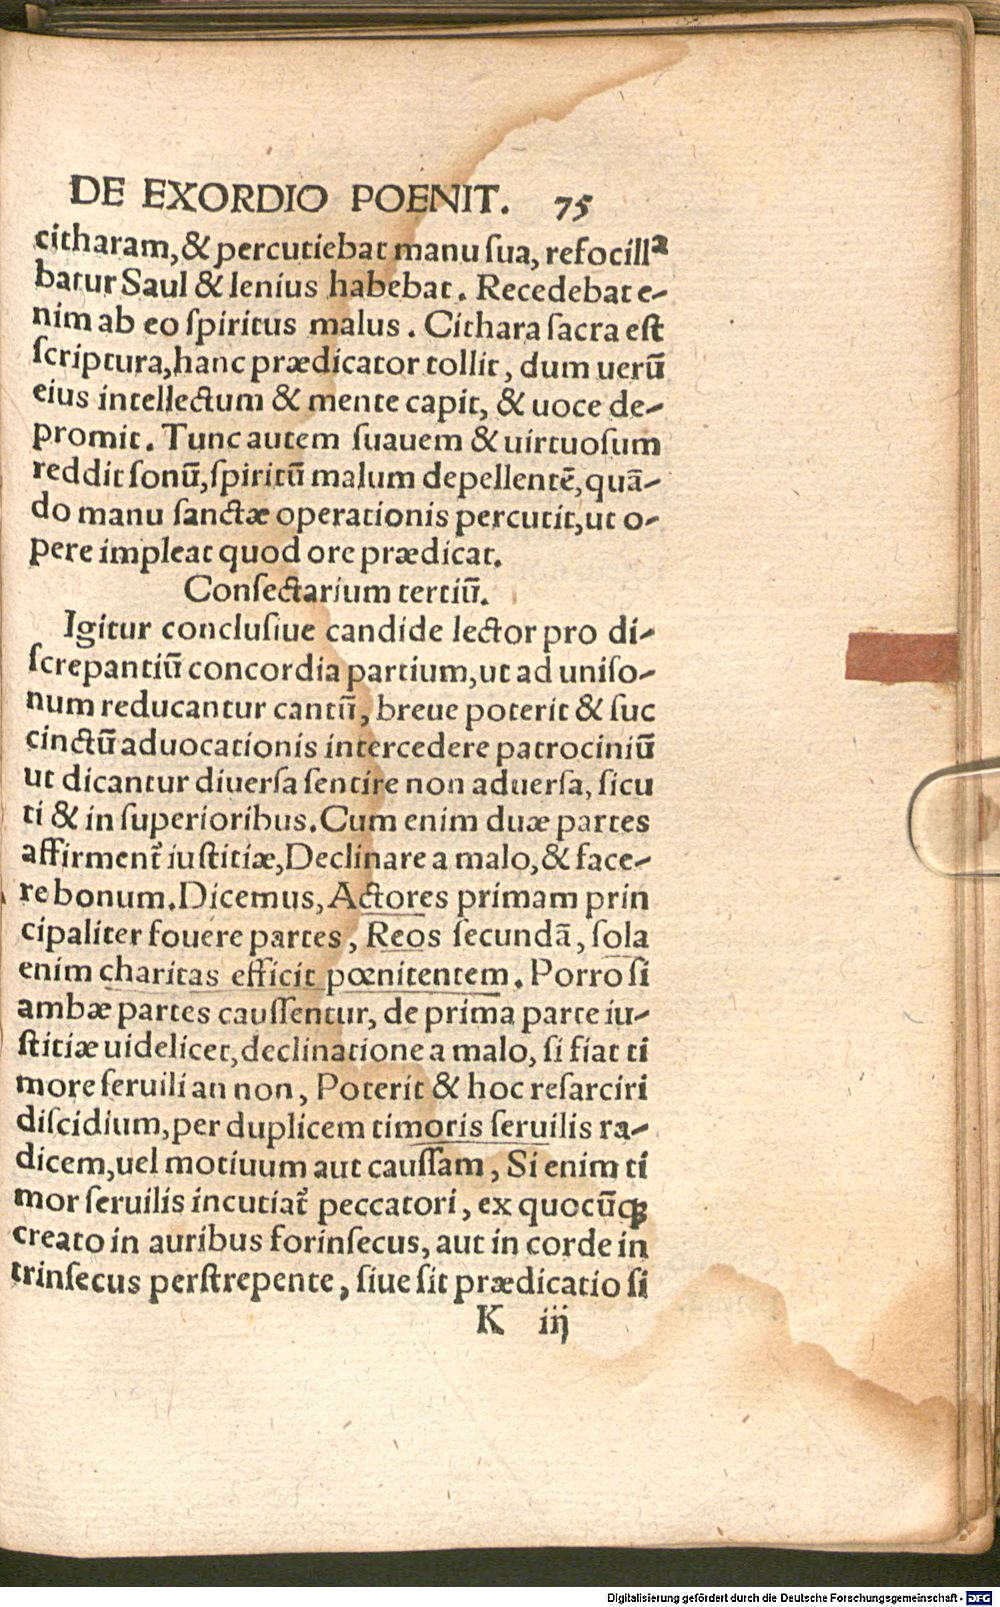 DE EXORDIO POENIT. 75
citharam, & percutiebat manu ſua, refocillᵃ
batur Saul & lenius habebat. Recedebat e-
nim ab eo ſpiritus malus. Cithara ſacra eſt
ſcriptura, hanc prædicator tollit, dum uerũ
eius intellectum & mente capit, & uoce de-
promit. Tunc autem ſuauem & uirtuoſum
reddit ſonũ, ſpiritũ malum depellentẽ, quã-
do manu ſanctæ operationis percutit, ut o-
pere impleat quod ore prædicat.
Conſectarium tertiũ.
Igitur concluſiue candide lector pro di-
ſcrepantiũ concordia partium, ut ad uniſo-
num reducantur cantũ, breue poterit & ſuc
cinctũ aduocationis intercedere patrociniũ
ut dicantur diuerſa ſentire non aduerſa, ſicu
ti & in ſuperioribus. Cum enim duæ partes
affirment᷑ iuſtitiæ, Declinare a malo, & face-
re bonum. Dicemus, Actores primam prin
cipaliter fouere partes, Reos ſecundã, ſola
enim charitas efficit pœnitentem. Porro ſi
ambæ partes cauſſentur, de prima parte iu-
ſtitiæ uidelicet, declinatione a malo, ſi fiat ti
more ſeruili an non, Poterit & hoc reſarciri
diſcidium, per duplicem timoris ſeruilis ra-
dicem, uel motiuum aut cauſſam, Si enim ti
mor ſeruilis incutiat᷑ peccatori, ex quocũꝙ
creato in auribus forinſecus, aut in corde in
trinſecus perſtrepente, ſiue ſit prædicatio ſi
K iij
Digitalisierung gefördert durch die Deutsche Forschungsgemeinschaft - DFG